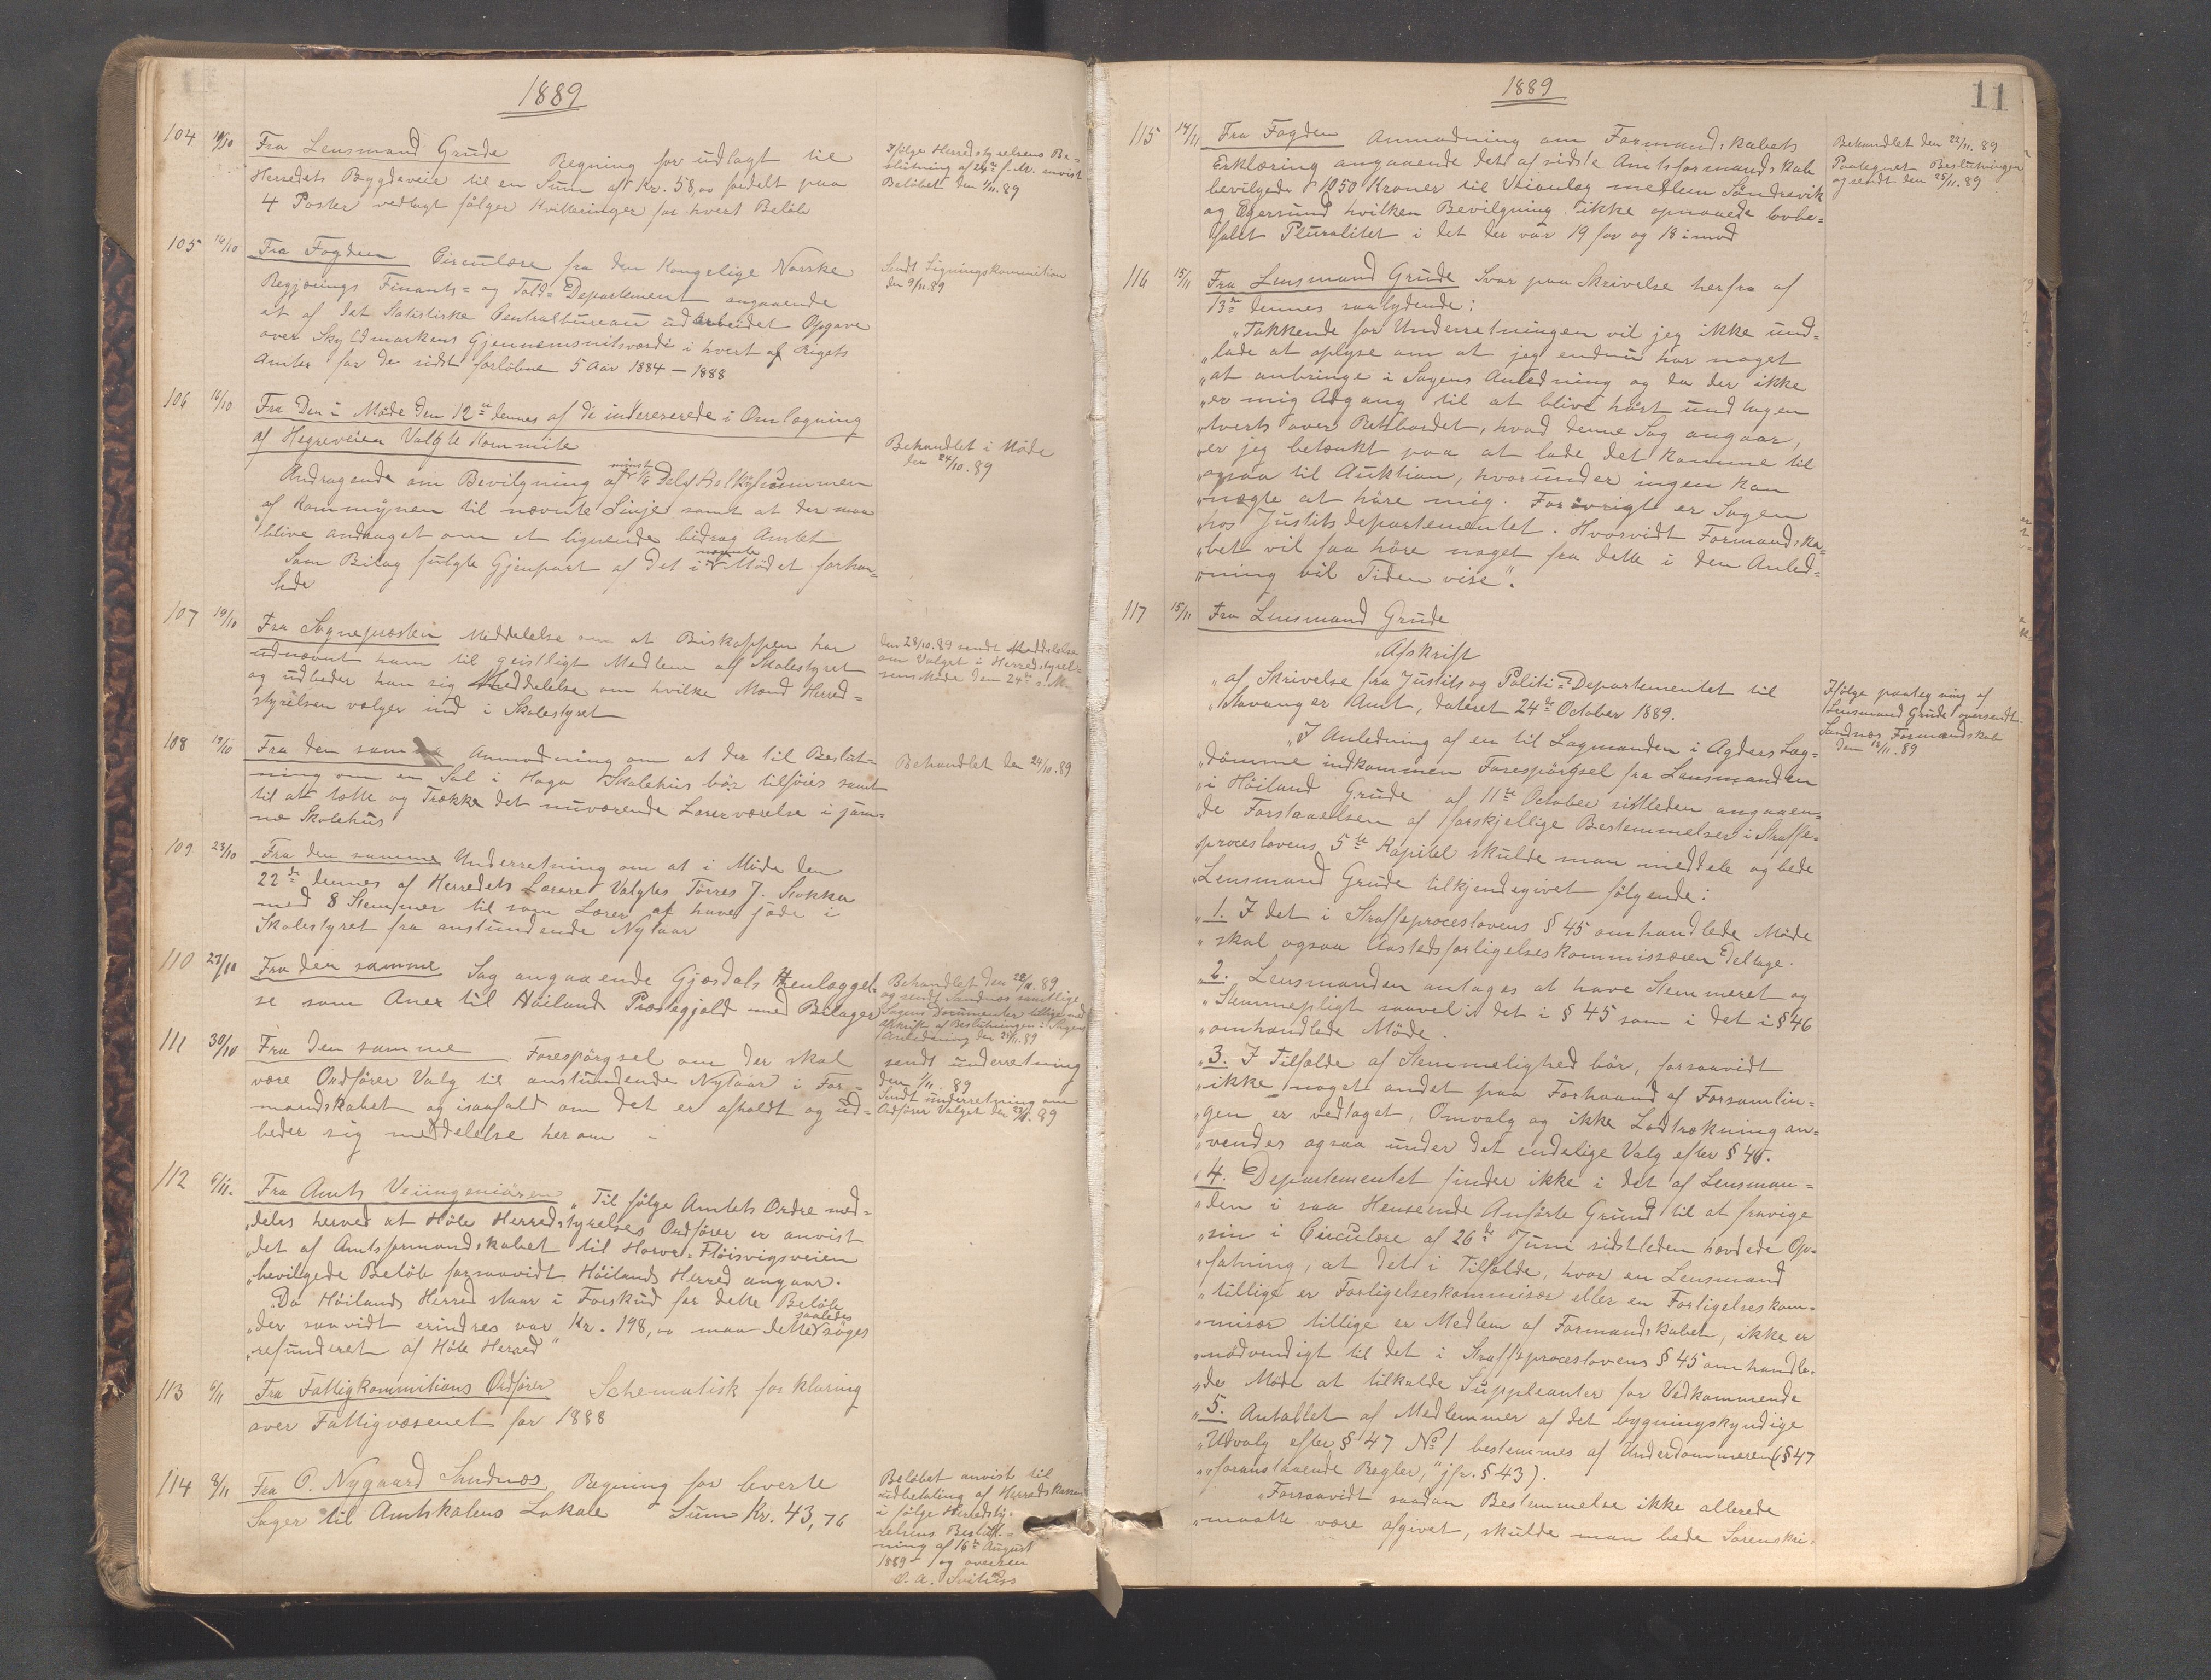 1889
104 14/10 Fra Lensmand Grude Regning for udlagt til
Herredets Bygdeveie til en Sum aft Kr. 58,00 fordelt paa
4 Poster vedlagt følger Kvitteringer for hvert Beløb
Ifølge Herredstyrelsens Be=
slutning af 24de f. M. anvist
Beløbet den 1/11.89
105 14/10 Fra Fogden Circulære fra den Kongelige Norske
Regjerings Finants= og Told= Departement angaaende
et af det Statistiske Centralbureau udarbeidet Opgave
over Skyldmarkens Gjennemsnitsværdi i hvert af Rigets
Amter for de sidst forløbne 5 Aar 1884 – 1888
Sendt Ligningskommition
den 9/11.89
106 16/10 Fra Den i Møde den 12te dennes af de indereserede i Omlægning
af Hegreveien Valgte Kommite
Andragende om Bevilgning af mindst 1/6 Del af
af Kommunen til nævnte Linje samt at der maa
blive andraget om et lignende bidrag Amtet
Som Bilag fulgte Gjenpart af det i nævnte Mødet forhan=
lede
Behandlet i Møde
den 24/10.89
107 19/10 Fra Sognepresten Meddelelse om at Biskoppen har
udnævnt ham til geistligt Medlem af Skolestyret
og udbeder han sig Meddelelse om hvilke Mænd Herred=
styrelsen vælger ind i Skolestyret
den 28/10.89 sendt Meddelelse
om Valget i Herredstyrel=
sens Møde den 24de
108 19/10 Fra den samme Anmodning om at der til Beslut=
ning om en Sal i Haga Skolehus bør tilføies samt
til at tætte og Trække det nuværende Lærerværelse i
Skolehus
Behandlet den 24/10.89
109 23/10 Fra den samme Underretning om at i Møde den
22de dennes af Herredets Lærere Valgtes Tørres J. Stokka
med 8 Stemmer til som Lærer at have sæde i
Skolestyret fra anstundende Nytaar
110 27/10 Fra den samme Sag angaaende Gjesdals Henlæggel=
se som Anex til Høilands Præstegjeld med Bilager
Behandlet den 22/11.89
og sendt Sandnes samtlige
Sagens Documenter tillige med
afskrift af Beslutningen i Sagens
Anledning den 25/11.89
111 30/10 Fra den samme Forespørgsel om der skal
være Ordfører Valg til anstundende Nytaar i For=
mandskabet og isaafald om det er afholdt og ud=
beder sig meddelelse herom –
sendt underretning
den 1/11.89
Sendt underretning om
Ordfører Valget den 23/11.89
112 6/11. Fra Amts Veiingeniøren „Til følge Amtets Ordre med=
„deles herved at Høle Herredstyrelses Ordfører er anvist
„det af Amtsformandskabet til Horve=Fløisvigsveien
„bevilgede Beløb forsaavidt Høilands Herred angaar.
„Da Høilands Herred staar i Forskud for dette Beløb
„der saavidt erindres var Kr. 198,00 maa dette saaledes søges
„refunderet af Høle Herred“
113 6/11 Fra Fattigkommitions Ordfører Schematisk forklaring
over Fattigvæsenet for 1888
114 8/11 Fra O. Nygaard Sandnes. Regning for leverte
Sager til Amtskolens Lokale Sum Kr. 43,76
Beløbet anvist til
udbetaling af Herredskassen
i følge Herredsty=
relsens Beslut=
ning af 16de August
1889 – og oversen
1889
11
115 14/11 Fra Fogden Anmodning om Formandskabets
Erklæring angaaende det af sidste Amtsformandskab
bevilgede 1050 Kroner til Veianlæg mellem Søndrevik
og Egersund hvilken Bevilgning ikke opnaaede lovbe=
falet Pluralitet i det der var 19 for og 18 imod
Behandlet den 22/11.89
Paategnet Beslutningen
og sendt den 25/11.89
116 15/11 Fra Lensmand Grude Svar paa Skrivelse herfra af
13de dennes saalydende:
„Takkende for Underretningen vil jeg ikke und=
„lade at oplyse om at jeg endnu har noget
„at anbringe i Sagens Anledning og da der ikke
„er mig Adgang til at blive hørt undtagen
„tverts over Retsbordet, hvad denne Sag angaar,
„er jeg betænkt paa at lade det komme til
„ogsaa til Auktion, hvorunder ingen kan
„nægte at høre mig. Forøvrigt er Sagen
„hos Justitsdepartementet. Hvorvidt Formandska=
„bet vil faa høre noget fra dette i den Anled=
„ning vil Tiden vise“.
117 15/11 Fra Lensmand Grude
„Afskrift
„af Skrivelse fra Justits og Politi=Departementet til
„Stavanger Amt, dateret 24de October 1889.
Ifølge paategning af
Lensmand Grude oversendt
Sandnes Formandskab
den 18/11.89
„I Anledning af en til Lagmanden i Agders Lag=
„dømme indkommen Forespørgsel fra Lensmanden
„i Høiland Grude af 11te October sidstleden angaaen=
„de Forstaaelsen af forskjellige Bestemmelser i Straffe=
„proceslovens 5te Kapitel skulde man meddele og bede
„Lensmand Grude tilkjendegivet følgende:
„1. I det i Straffeproceslovens § 45 omhandlede Møde
„skal ogsaa Aastedsforligelseskommissæren deltage.
„2. Lensmanden antages at have Stemmeret og
„Stemmepligt saavel i det i § 45 som i det i § 46
„omhandlede Møde.
„3. I Tilfælde af Stemmelighed bør, forsaavidt
„ikke noget andet paa Forhaand af Forsamlin=
„gen er vedtaget, Omvalg og ikke Lodtrækning an=
„vendes ogsaa under det endelige Valg efter § 46.
„4. Departementet finder ikke i det af Lensman=
„den i saa Henseende Anførte Grund til at fravige
„sin i Circulære af 26de Juni sidstleden hævdede Op=
„fatning, at det i Tilfælde, hvor en Lensmand
„tillige er Forligelseskommisær eller en Forligelseskom=
„misær tillige er Medlem af Formandskabet, ikke er
„nødvendigt til det i Straffeproceslovens § 45 omhandle=
„de Møde at tilkalde Suppleanter for Vedkommende
„5. Antallet af Medlemmer af det bygningskyndige
„Udvalg efter § 47 No 1 bestemmes af Underdommeren (§ 47
„„foranstaaende Regler,“ jfr. § 43).
„Forsaavidt saadan Bestemmelse ikke allerede
„maatte være afgivet, skulde man bede Sorenskri=